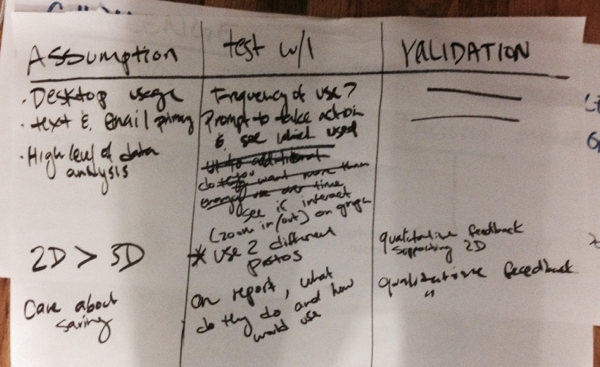 Assumption
test w/
VALIDATION
· Desktop usage
Frequency of use?
· text & email primary
Prompt to take action
& see which used
· High level of data
analysis
UI to additional
do
want more than
energy use over time
see if interact
(zoom in/out) on graph
2D > 3D
* use 2 different
protos
qualitative feedback
supporting 2D
Care about
saving
on report, what
do they do and how
would use
qualitative feedback
"